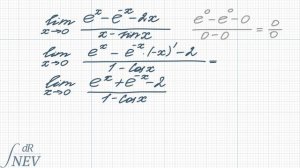 lim x→0 (e^x - e^-x - 2x)/(x - sin x) (e^0 - e^-0 - 0)/(0 - 0) = 0/0
lim x→0 (e^x - e^-x · (-x)' - 2)/(1 - cos x) =
lim x→0 (e^x + e^-x - 2)/(1 - cos x)
∫ dR
NEV